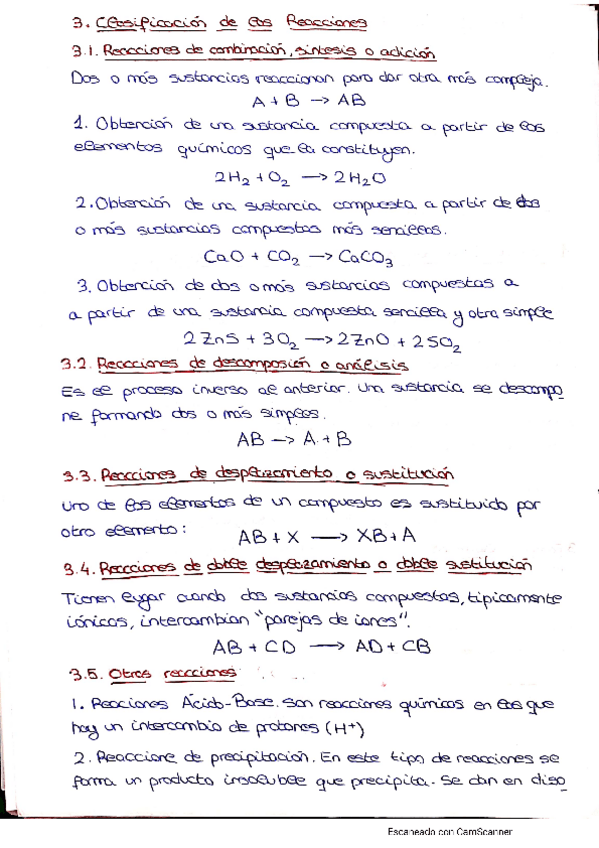 3. Clasificación de las Reacciones
3.1. Reacciones de combinación, síntesis o adición
Dos o más sustancias reaccionan para dar otra más compleja.
A + B → AB
1. Obtención de una sustancia compuesta a partir de los
elementos químicos que la constituyen.
2H₂ + O₂ → 2H₂O
2. Obtención de una sustancia compuesta a partir de dos
o más sustancias compuestas más sencillas.
CaO + CO₂ → CaCO₃
3. Obtención de dos o más sustancias compuestas a
a partir de una sustancia compuesta sencilla y otra simple
2 ZnS + 3O₂ → 2ZnO + 2SO₂
3.2. Reacciones de descomposición o análisis
Es el proceso inverso al anterior. Una sustancia se descompo
ne formando dos o más simples.
AB → A + B
3.3. Reacciones de desplazamiento o sustitución
Uno de los elementos de un compuesto es sustituido por
otro elemento: AB + X → XB + A
3.4. Reacciones de doble desplazamiento o doble sustitución
Tienen lugar cuando dos sustancias compuestas, típicamente
iónicos, intercambian "parejas de iones".
AB + CD → AD + CB
3.5. Otras reacciones
1. Reaciones Ácido-Base. Son reacciones químicos en las que
hay un intercambio de protones (H⁺)
2. Reaccione de precipitación. En este tipo de reacciones se
forma un producto insoluble que precipita. Se dan en diso
Escaneado con CamScanner